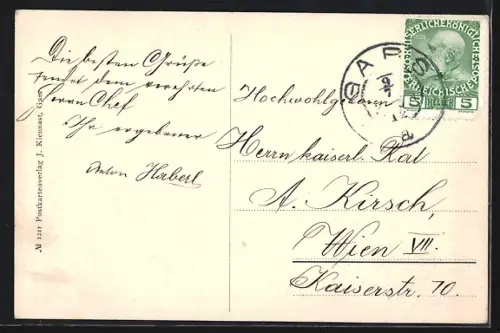 Die besten Grüße
sendet dem verehrten
Herrn Chef
Ihr ergebener
Anton Haberl
№ 1217 Postkartenverlag J. Kiennast, Gars
GARS
9
12
a
KAISERLICHE KÖNIGLICHE
ÖSTERREICHISCHE
5 HELLER 5
Hochwohlgeboren
Herrn kaiserl. Rat
A. Kirsch,
Wien VII.
Kaiserstr. 10.